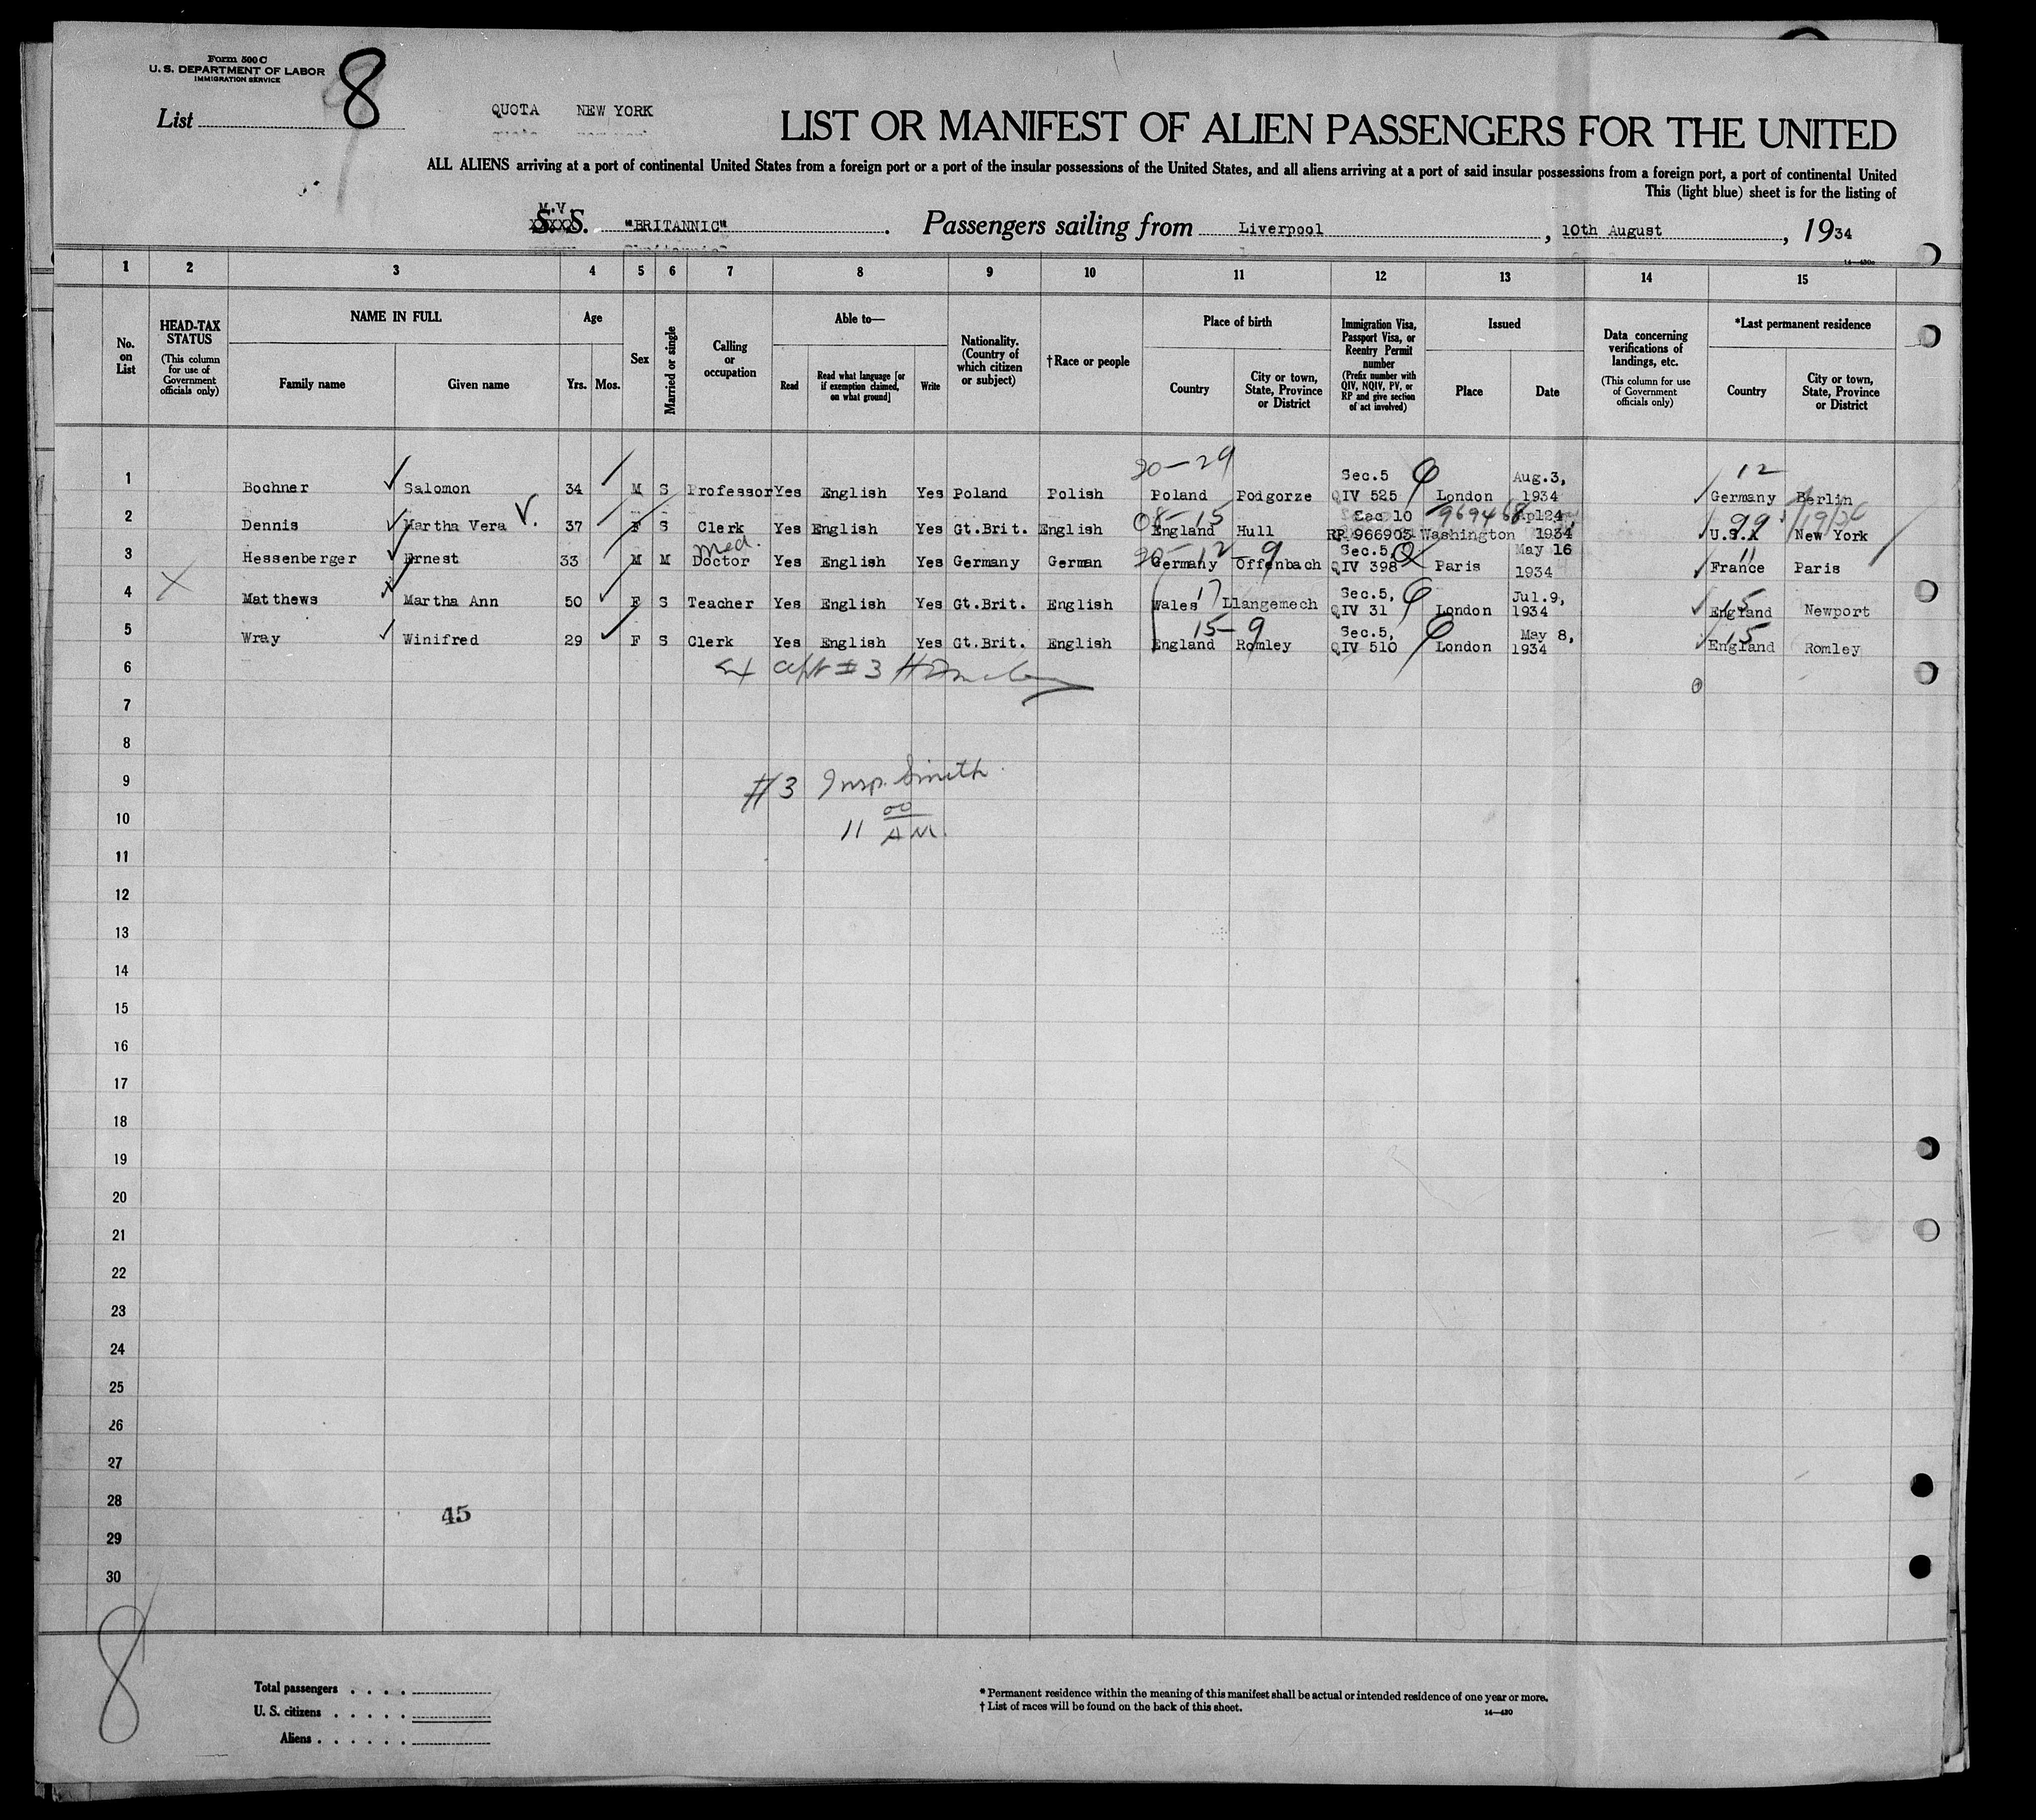 Form 500 C
U. S. DEPARTMENT OF LABOR
IMMIGRATION SERVICE
List 8
QUOTA NEW YORK
LIST OR MANIFEST OF ALIEN PASSENGERS FOR THE UNITED
ALL ALIENS arriving at a port of continental United States from a foreign port or a port of the insular possessions of the United States, and all aliens arriving at a port of said insular possessions from a foreign port, a port of continental United
This (light blue) sheet is for the listing of
M.V.
S. S. "BRITANNIC". Passengers sailing from Liverpool, 10th August, 1934
1 2 3 4 5 6 7 8 9 10 11 12 13 14 15
No. on List
HEAD-TAX STATUS
(This column for use of Government officials only)
NAME IN FULL
Family name
Given name
Age
Yrs.
Mos.
Sex
Married or single
Calling or occupation
Able to—
Read
Read what language [or if exemption claimed, on what ground]
Write
Nationality. (Country of which citizen or subject)
†Race or people
Place of birth
Country
City or town, State, Province or District
Immigration Visa, Passport Visa, or Reentry Permit number
(Prefix number with QIV, NQIV, PV, or RP and give section of act involved)
Issued
Place
Date
Data concerning verifications of landings, etc.
(This column for use of Government officials only)
*Last permanent residence
Country
City or town, State, Province or District
20-29
Sec.5 Aug.3, 12
1 Bochner Salomon 34 M S Professor Yes English Yes Poland Polish Poland Podgorze QIV 525 London 1934 Germany Berlin
08-15 Sec 10 969468 Apl24, 99
2 Dennis Martha Vera V. 37 F S Clerk Yes English Yes Gt.Brit. English England Hull RP 966905 Washington 1934 U.S.A New York
Med. 12 9 Sec.5, May 16 11
3 Hessenberger Ernest 33 M M Doctor Yes English Yes Germany German Germany Offenbach QIV 398 Paris 1934 France Paris
17 Sec.5, Jul.9, 15
4 Matthews Martha Ann 50 F S Teacher Yes English Yes Gt.Brit. English Wales Llangemech QIV 31 London 1934 England Newport
15-9 Sec.5, May 8, 15
5 Wray Winifred 29 F S Clerk Yes English Yes Gt.Brit. English England Romley QIV 510 London 1934 England Romley
6
7
8
9 #3 Insp. Smith
10 11 00 AM.
11
12
13
14
15
16
17
18
19
20
21
22
23
24
25
26
27
28 45
29
30
8
Total passengers . . . .
U. S. citizens . . . . .
Aliens . . . . . .
* Permanent residence within the meaning of this manifest shall be actual or intended residence of one year or more.
† List of races will be found on the back of this sheet.
14—430